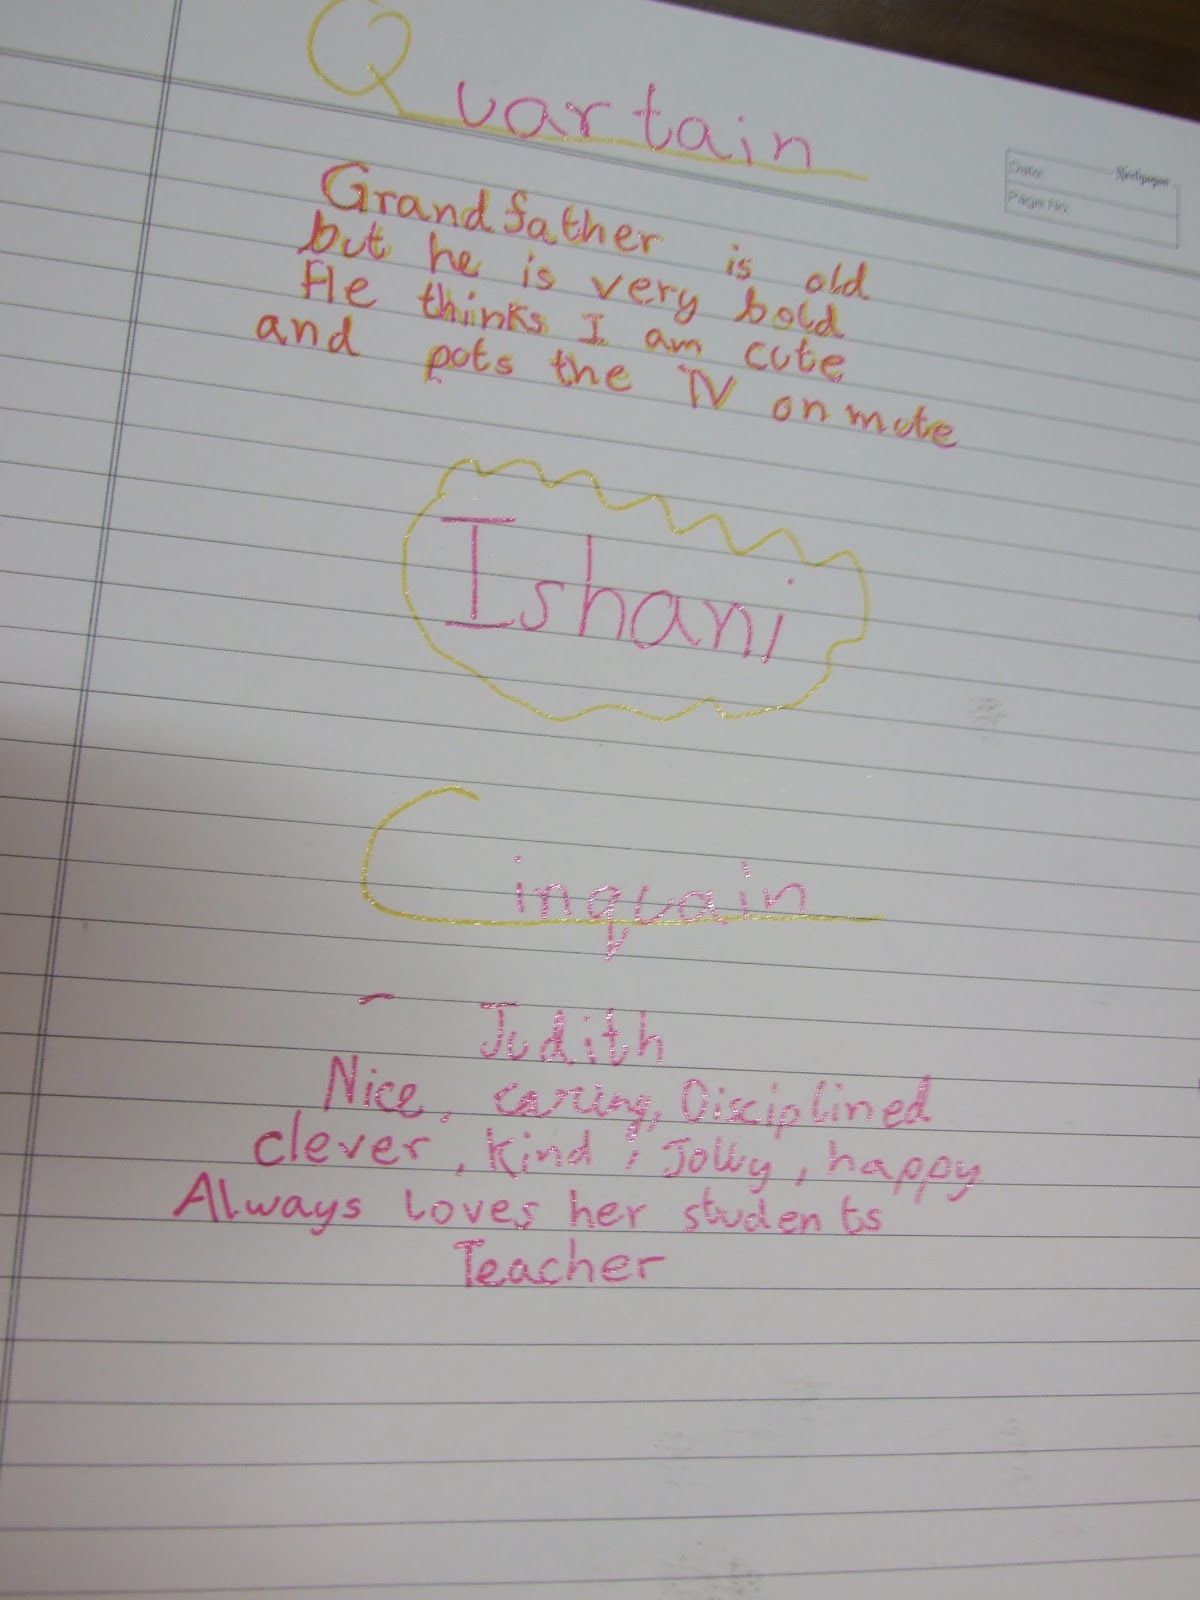 Quartain
Date:
Neelgagan
Page No.
Grandfather is old
but he is very bold
He thinks I am cute
and puts the TV on mute
Ishani
Cinquain
Judith
Nice, caring, Disciplined
clever, kind, Jolly, happy
Always loves her students
Teacher